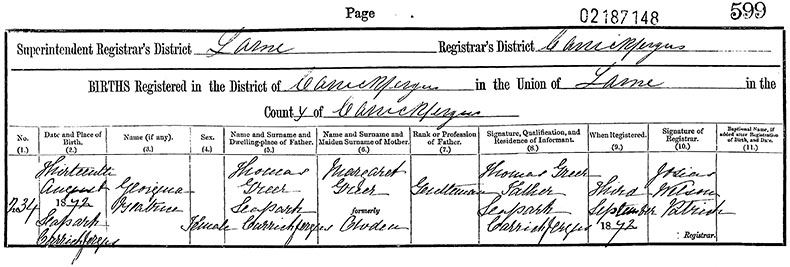 Page 02187148 599
Superintendent Registrar's District Larne Registrar's District Carrickfergus
BIRTHS Registered in the District of Carrickfergus in the Union of Larne in the
County of Carrickfergus
No. (1.)
Date and Place of Birth. (2.)
Name (if any). (3.)
Sex. (4.)
Name and Surname and Dwelling-place of Father. (5.)
Name and Surname and Maiden Surname of Mother. (6.)
Rank or Profession of Father. (7.)
Signature, Qualification, and Residence of Informant. (8.)
When Registered. (9.)
Signature of Registrar. (10.)
Baptismal Name, if added after Registration of Birth, and Date. (11.)
234
Thirteenth
August
1872
Seapark
Carrickfergus
Georgina
Beatrice
Female
Thomas
Greer
Seapark
Carrickfergus
Margaret
Greer
formerly
Owden
Gentleman
Thomas Greer
Father
Seapark
Carrickfergus
Third
September
1872
Josias
Wilson
Patrick
Registrar.